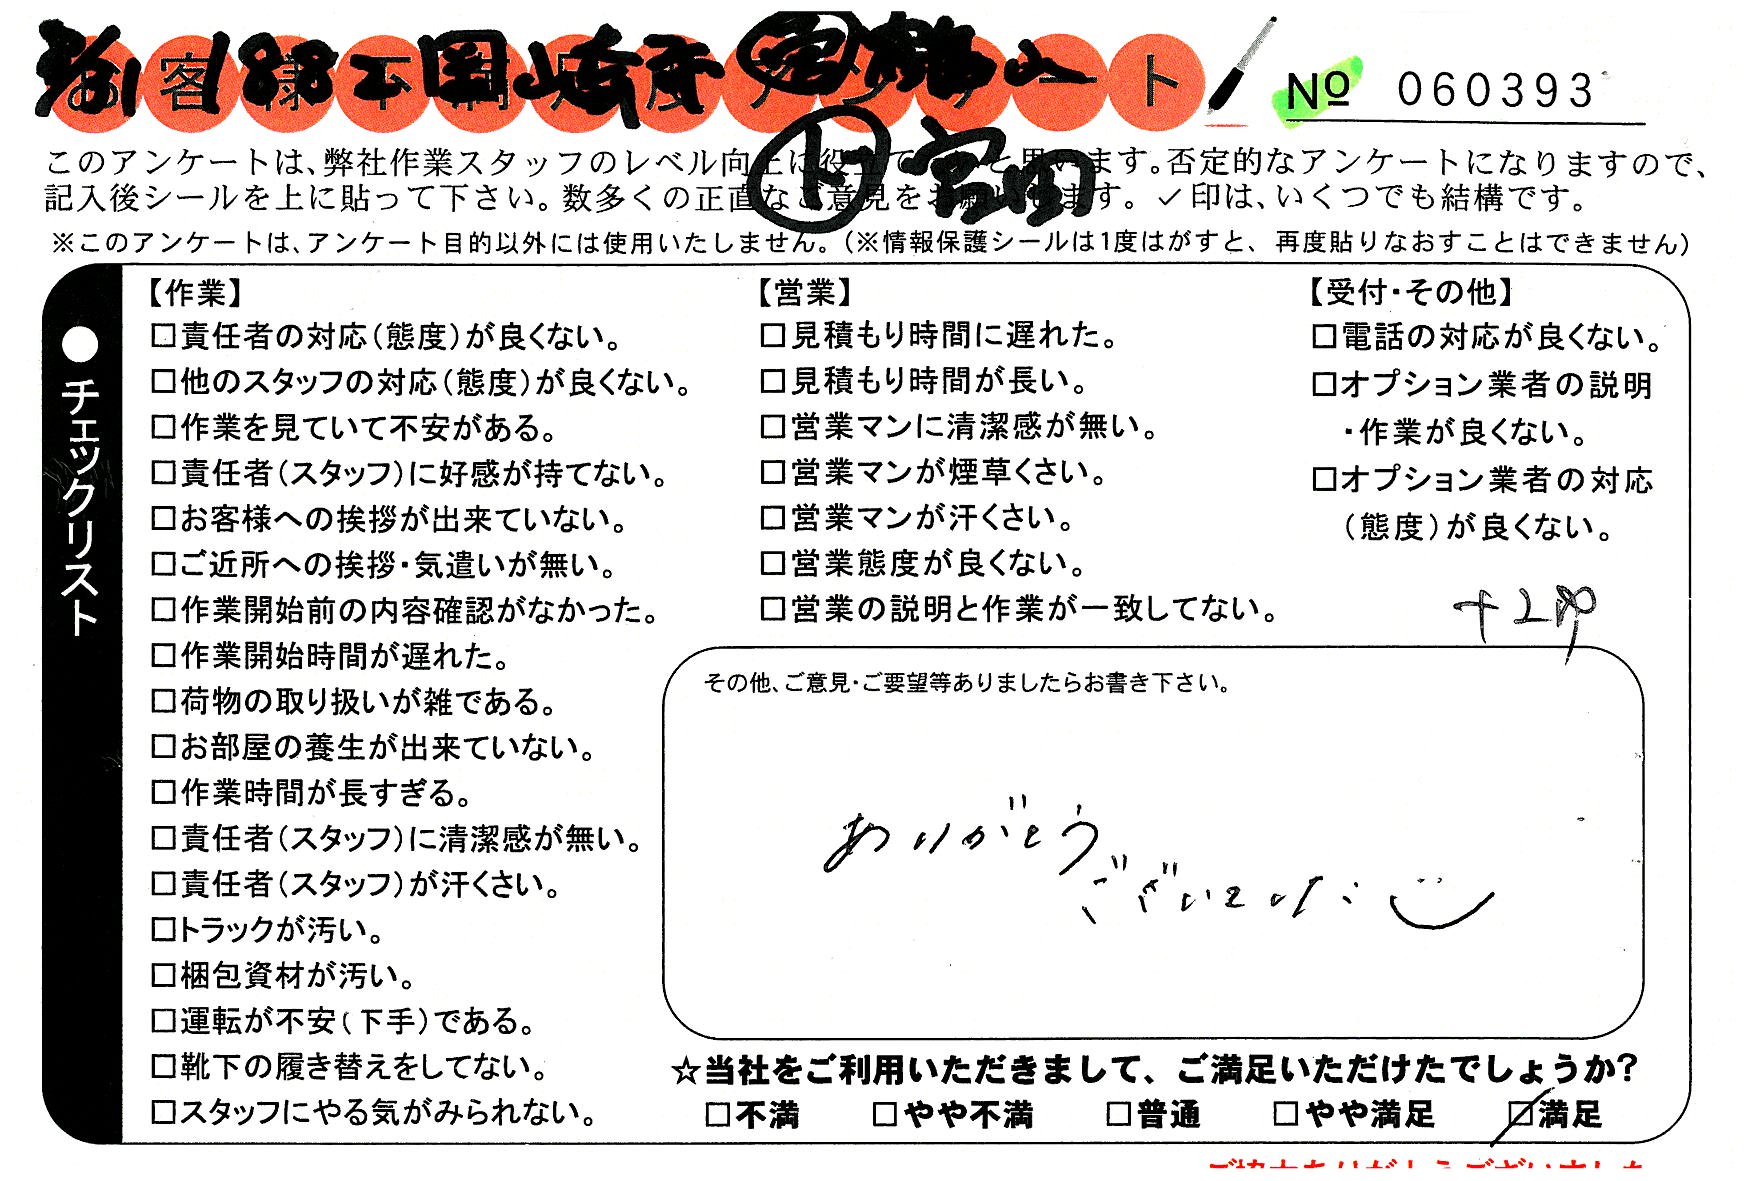 お客様不満足度アンケート
№ 060393
188 岡崎 宮
ト 宮田
このアンケートは、弊社作業スタッフのレベル向上に役立て と思います。否定的なアンケートになりますので、
記入後シールを上に貼って下さい。数多くの正直なご意見をお願いします。✓印は、いくつでも結構です。
※このアンケートは、アンケート目的以外には使用いたしません。(※情報保護シールは1度はがすと、再度貼りなおすことはできません)
●チェックリスト
【作業】
□責任者の対応(態度)が良くない。
□他のスタッフの対応(態度)が良くない。
□作業を見ていて不安がある。
□責任者(スタッフ)に好感が持てない。
□お客様への挨拶が出来ていない。
□ご近所への挨拶・気遣いが無い。
□作業開始前の内容確認がなかった。
□作業開始時間が遅れた。
□荷物の取り扱いが雑である。
□お部屋の養生が出来ていない。
□作業時間が長すぎる。
□責任者(スタッフ)に清潔感が無い。
□責任者(スタッフ)が汗くさい。
□トラックが汚い。
□梱包資材が汚い。
□運転が不安(下手)である。
□靴下の履き替えをしてない。
□スタッフにやる気がみられない。
【営業】
□見積もり時間に遅れた。
□見積もり時間が長い。
□営業マンに清潔感が無い。
□営業マンが煙草くさい。
□営業マンが汗くさい。
□営業態度が良くない。
□営業の説明と作業が一致してない。
【受付・その他】
□電話の対応が良くない。
□オプション業者の説明
・作業が良くない。
□オプション業者の対応
(態度)が良くない。
その他、ご意見・ご要望等ありましたらお書き下さい。
ありがとう
ございました
☆当社をご利用いただきまして、ご満足いただけたでしょうか?
□不満 □やや不満 □普通 □やや満足 ☑満足
ご協力ありがとうございました